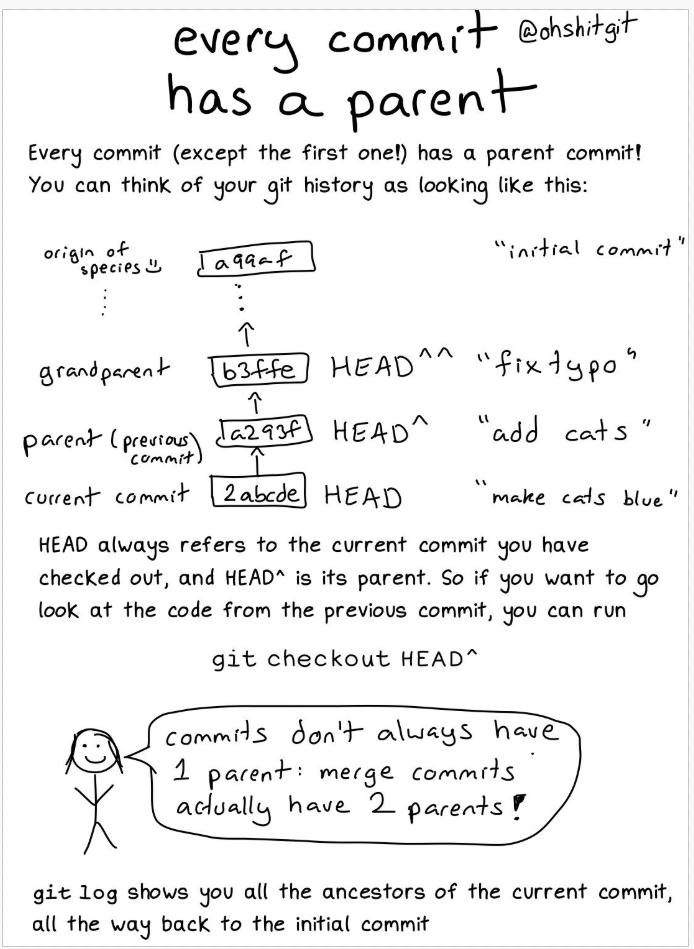 every commit @ohshitgit
has a parent
Every commit (except the first one!) has a parent commit!
You can think of your git history as looking like this:
origin of
species a99af "initial commit"
grandparent b3ffe HEAD^^ "fix typo"
parent (previous commit) a293f HEAD^ "add cats"
current commit 2abcde HEAD "make cats blue"
HEAD always refers to the current commit you have
checked out, and HEAD^ is its parent. So if you want to go
look at the code from the previous commit, you can run
git checkout HEAD^
commits don't always have
1 parent: merge commits
actually have 2 parents!
git log shows you all the ancestors of the current commit,
all the way back to the initial commit